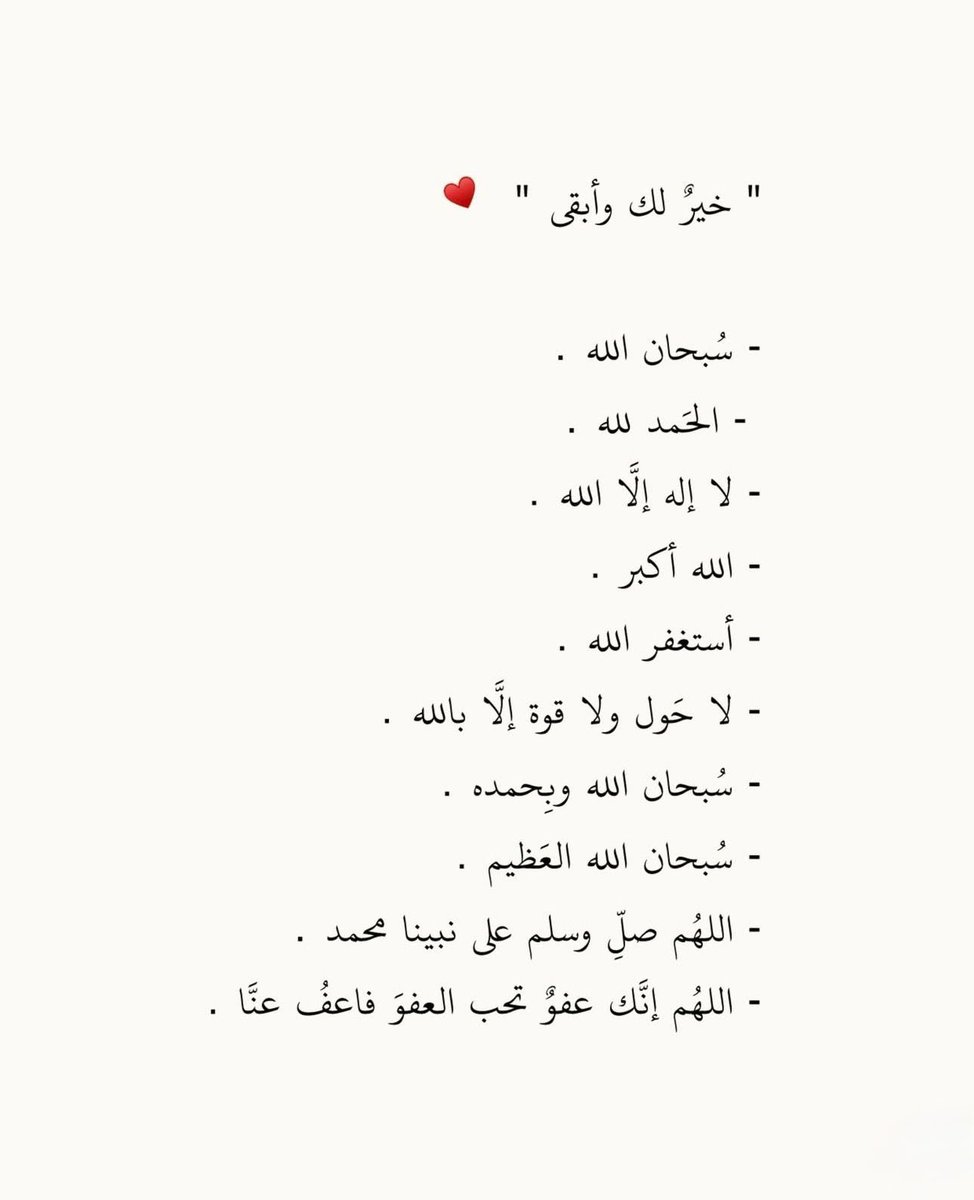 " خيرٌ لك وأبقى " ♥️
- سُبحان الله .
- الحَمد لله .
- لا إله إلَّا الله .
- الله أكبر .
- أستغفر الله .
- لا حَول ولا قوة إلَّا بالله .
- سُبحان الله وبِحمده .
- سُبحان الله العَظيم .
- اللهُم صلِّ وسلم على نبينا محمد .
- اللهُم إنَّك عفوٌ تحب العفوَ فاعفُ عنَّا .